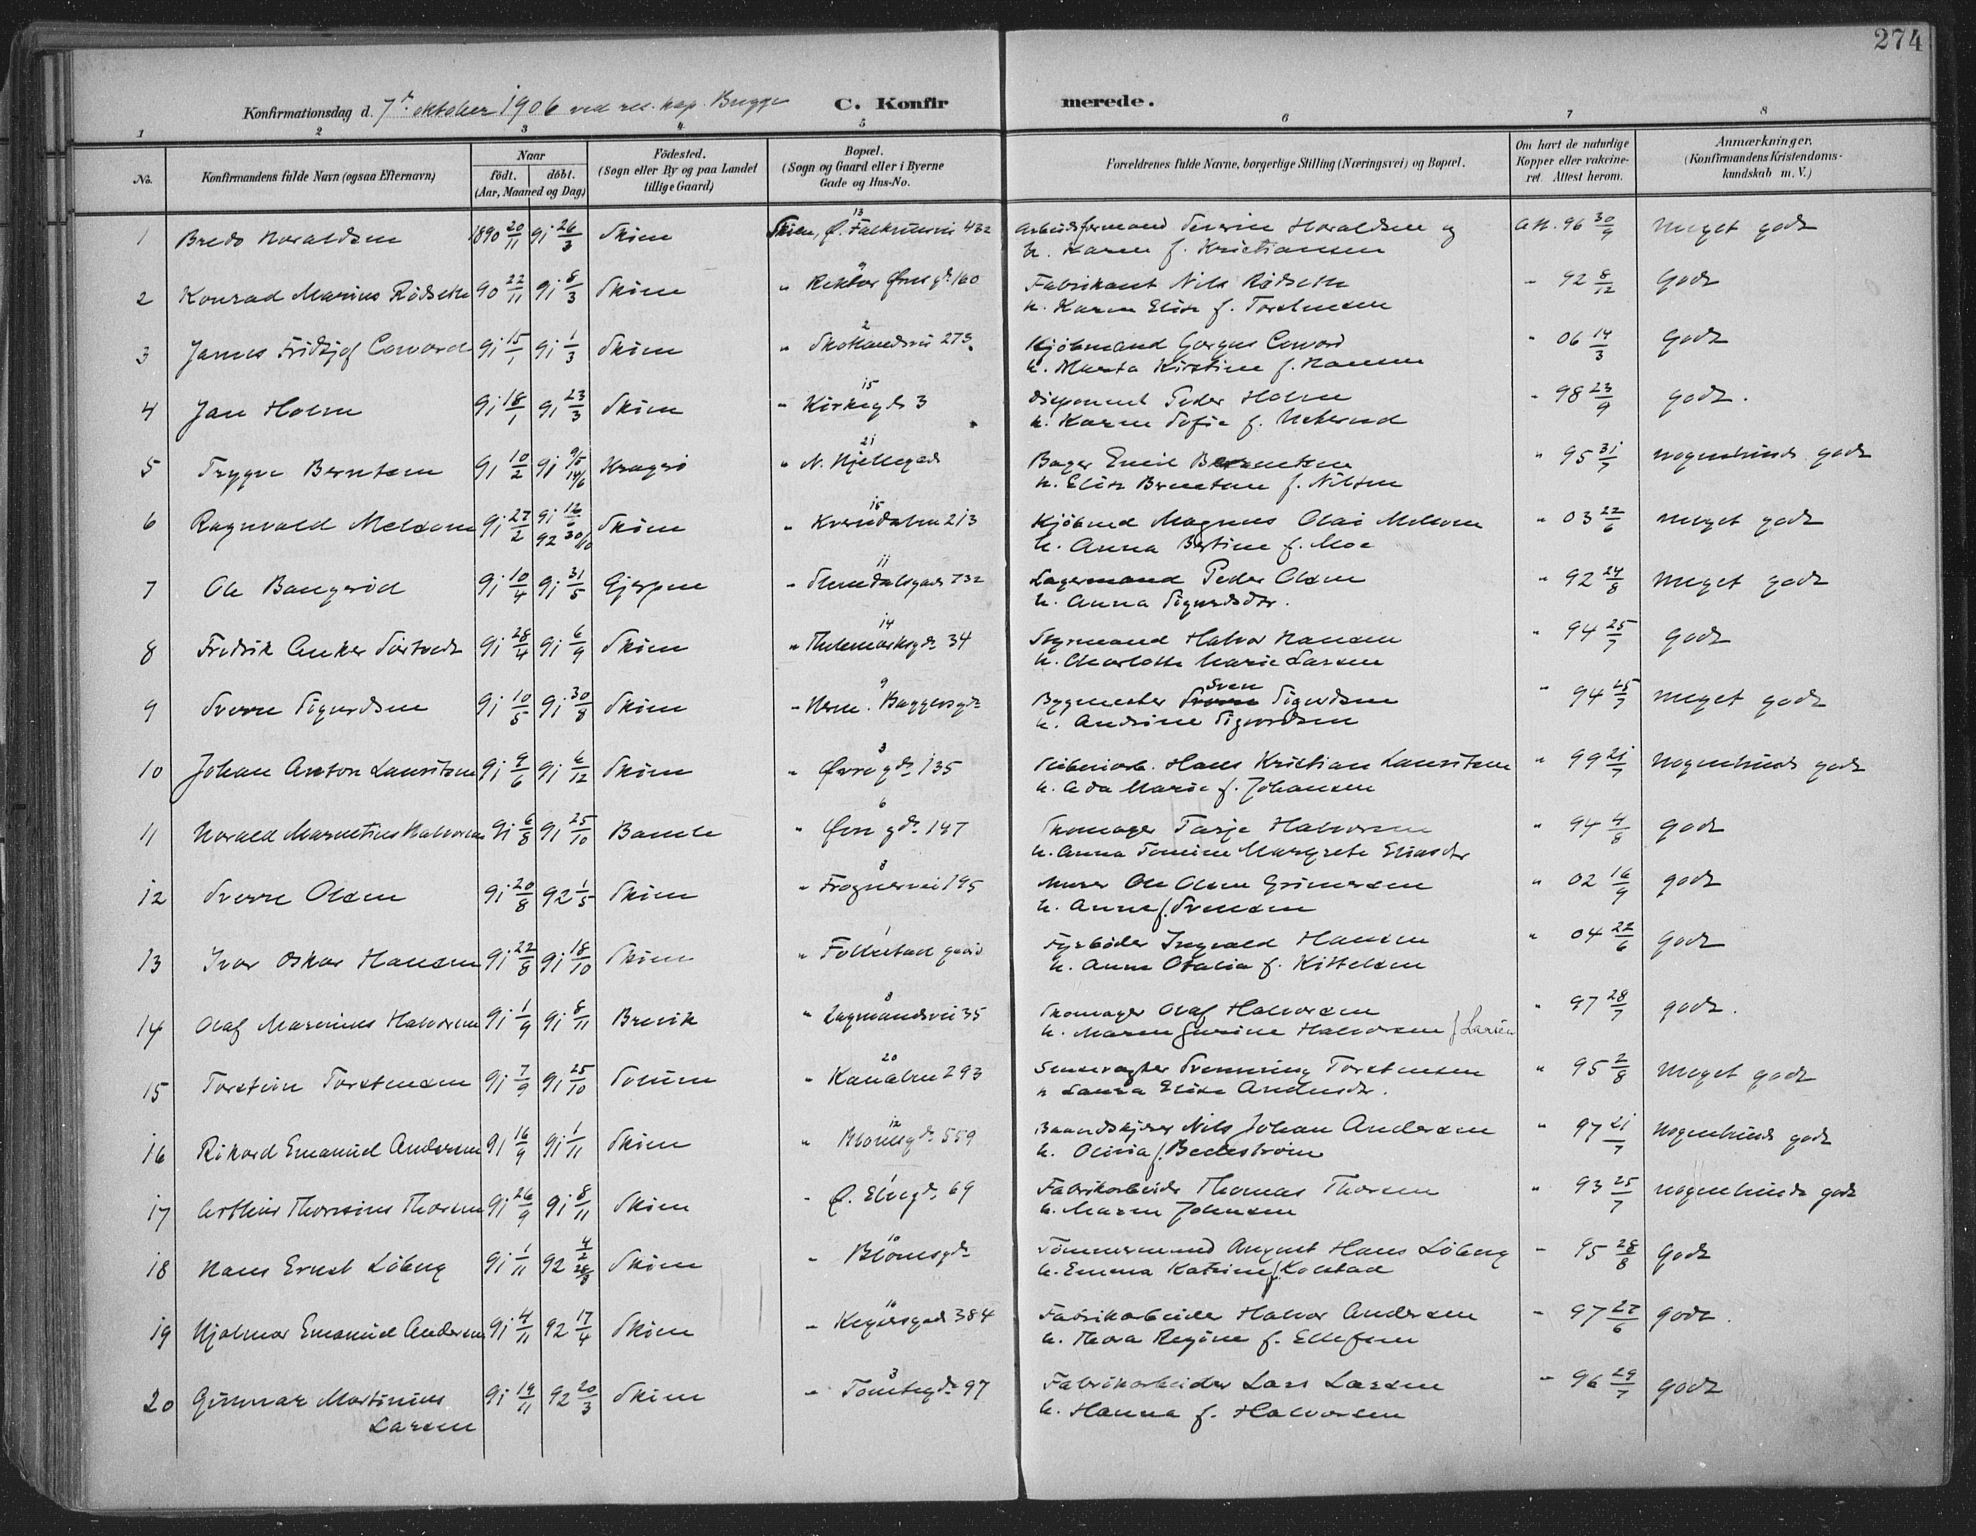 274
Konfirmationsdag d. 7de oktober 1906 ved res. kap. Bugge C. Konfirmerede.
1 2 3 4 5 6 7 8
No. Konfirmandens fulde Navn (ogsaa Efternavn) Naar födt. döbt. (Aar, Maaned og Dag) Födested. (Sogn eller By og paa Landet tillige Gaard) Bopæl. (Sogn og Gaard eller i Byerne Gade og Hus-No. Forældrenes fulde Navne, borgerlige Stilling (Næringsvei) og Bopæl. Om havt de naturlige Kopper eller vakcineret. Attest herom. Anmærkninger. (Konfirmandens Kristendomskundskab m. V.)
1 Bredo Haraldsen 1890 20/11 91 26/3 Skien Skien, Ø. Falkumvei 432 13 Arbeidsformand Severin Haraldsen og
h. Karen f. Kristiansen Att. 96 30/9 Meget godt
2 Konrad Marius Rödseth 90 22/11 91 8/3 Skien " Rektor Ørnsgd. 160 9 Fabrikant Nils Rödseth
h. Karen Elise f. Torstensen " 92 8/12 Godt
3 James Fridtjof Coward 91 15/1 91 1/3 Skien " Skotlandsvei 273 2 Kjöbmand Gorgus Coward
h. Marta Kirstine f. Hansen " 06 14/3 Godt
4 Jan Holm 91 18/1 91 23/3 Skien " Kirkegt. 3 15 Disponent Peder Holm
h. Karen Sofie f. " 98 23/9 godt.
5 Trygve Berntsen 91 10/2 91 9/5 14/6 Kragerö " N. Hjellegad 21 Bager Emil Berntsen
h. Elise Berntsen f. Nilsen " 95 31/7 nogenlunde godt
6 Ragnvald Melsom 91 27/2 91 16/6 92 30/10 Skien " Kverndalen 213 15 Kjöbmd Magnus Olai Melsom
h. Anna Bertine f. Moe " 03 22/6 meget godt
7 Ole Bangeröd 91 10/4 91 31/5 Gjerpen " 732 11 Lagermand Peder Olsen
h. Anna Sigurdsdtr. " 92 24/8 Meget godt
8 Fredrik Anker Sörtvedt 91 28/4 91 6/9 Skien " Thelemarksgd. 34 14 Styrmand Halvor Hansen
h. Charlotte Marie Larsen " 94 25/7 godt
9 Sverre Sigurdsen 91 10/5 91 30/8 Skien " Herm. Baggersgd. 9 Bygmester Sven Sigurdsen
h. Andrine Sigurdsen " 94 25/7 Meget godt
10 Johan Anton Lauritsen 91 9/6 91 6/12 Skien " Øvregd. 135 3 Sliberiarb. Hans Kristian Lauritsen
h. Ada Marie f. Johansen " 99 21/7 Nogenlunde godt
11 Harald Marnetius Halvorsen 91 6/8 91 25/10 Bamle " Øvregd. 147 6 Skomager Tarje Halvorsen
h. Anna Tomine Margrete Eliasdtr " 94 4/8 godt
12 Sverre Olsen 91 20/8 92 1/5 Skien " Frognervei 195 8 Murer Ole Olsen
h. Anne f. Svensen " 02 16/9 godt
13 Ivar Oskar Hansen 91 22/8 91 18/10 Skien " Follestad gaard 1 Fyrböder Ingvald Hansen
h. Anne Otalia f. Kittelsen " 04 22/6 godt
14 Olaf Marinius Halvorsen 91 1/9 91 8/11 Brevik " Lagmandsvei 35 8 Skomager Olaf Halvorsen
h. Maren Gurine Halvorsen f Larsen " 97 28/7 godt.
15 Torstein Torstensen 91 7/9 91 25/10 Solum " Kanalen 293 20 Slusevogter Svenning Torstensen
h Laura Elise Andersdtr. " 95 2/8 Meget godt
16 Rikard Emanuel Andersen 91 16/9 91 1/11 Skien " Blomsgd. 559 12 Brandskjörer Nils Johan Andersen
h. Olivia f. Beckström " 97 21/7 Nogenlunde godt
17 Arthur Thorvinius Thorsen 91 26/9 91 8/11 Skien " Ø. Elvegd. 69 1 Fabrikarbeider Thomas Thorsen
h. Maren Johnsen " 93 25/7 nogenlunde godt
18 Hans Ernst Löberg 91 1/11 92 4/2 28/8 Skien " Blomsgd. 10 Tömmermand August Hans Löberg
h. Emma Katrine f. Kolstad " 95 28/8 Godt
19 Hjalmar Emanuel Andersen 91 4/11 92 17/4 Skien " 384 16 Fabrikarbeider Halvor Andersen
h. Thora Regine f. Ellefsen " 97 27/6 godt.
20 Gunnar Martinius Larsen 91 19/11 92 20/3 Skien " Tomtegd. 97 3 Fabrikarbeider Lars Larsen
h. Hanna f. Halvorsen " 96 29/7 godt